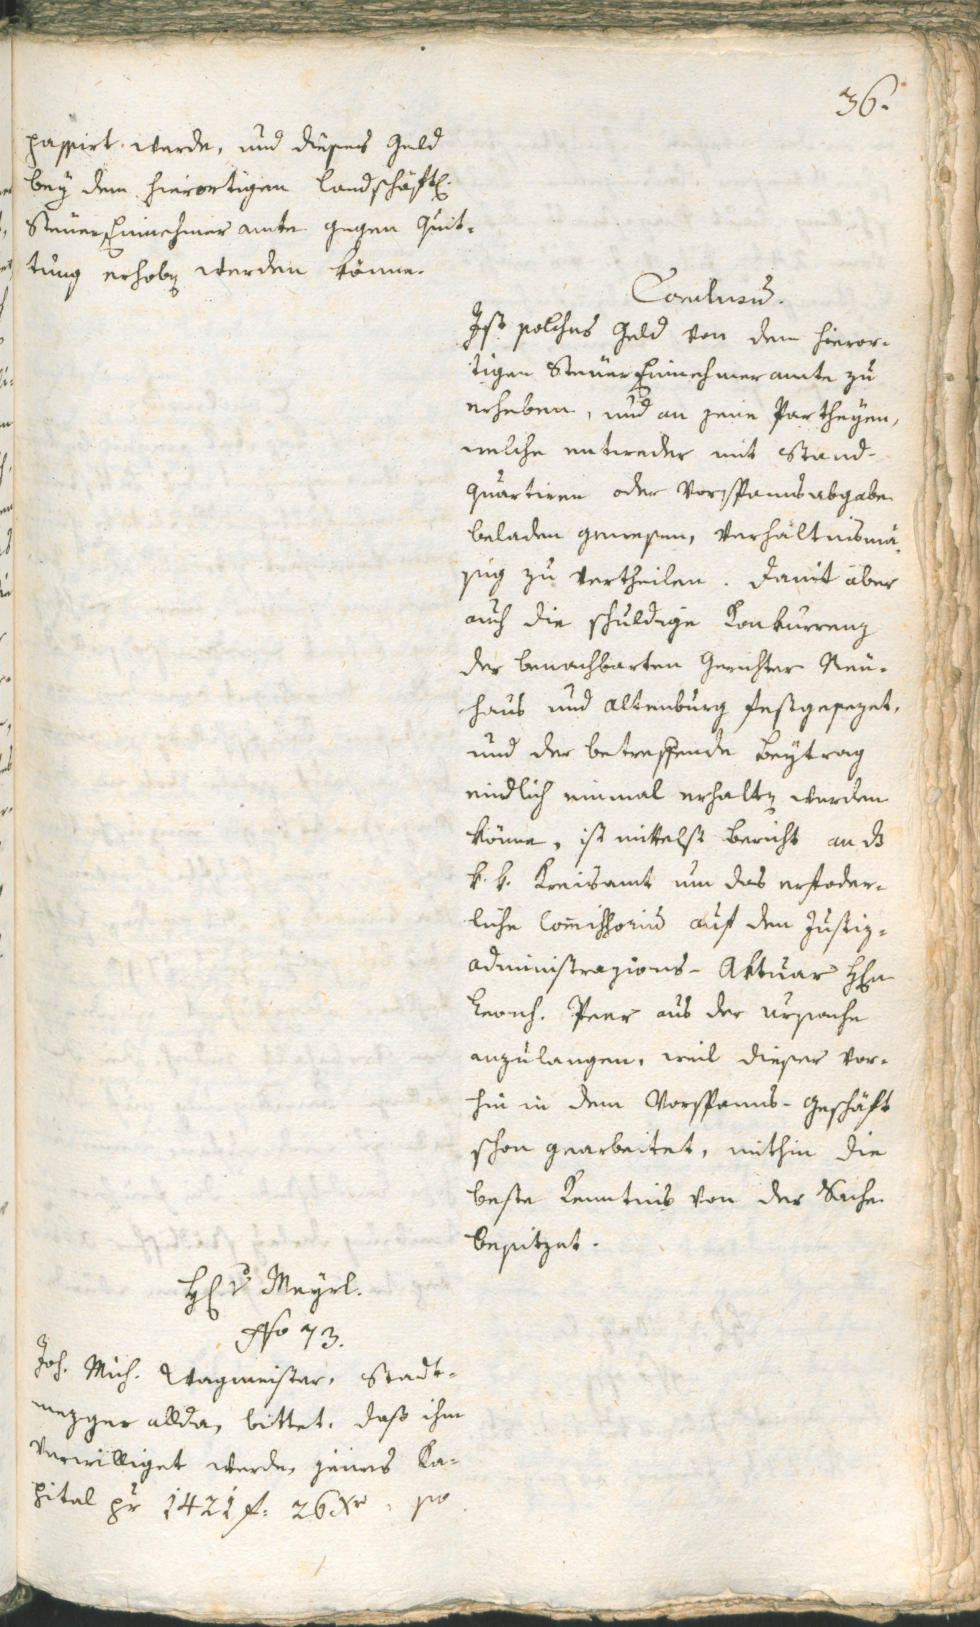 36.
passirt werde, und dieses Geld
bey dem hierortigen landschäftl.
Steuer Einnehmeramte gegen Quit-
tung erhoben werden könne.
Conclusum.
Ist solches Geld von dem hieror-
tigen Steuer Einnehmeramte zu
erheben, und an jene Partheyen,
welche entweder mit Stand-
quartiren oder Vorspannsabgabe
beladen gewesen, verhältnismä-
sig zu vertheilen. Damit aber
auch die schuldige Konkurrenz
der benachbarten Gerichter Neu-
haus und Altenburg festgesezet,
und der betreffende Beytrag
eindlich einmal erhalten werden
könne, ist mittelst Bericht an das
k. k. Kreisamt um das erfoder-
liche Commissorium auf den Justiz-
administrazions-Aktuar Herrn
Leonh. Peer aus der Ursache
anzulangen, weil dieser vor-
hin in dem Vorspanns-Geschäft
schon gearbeitet, mithin die
beste Kenntnis von der Sache
besitzet.
H. v. Meyrl.
No 73.
Joh. Mich. Wagmeister, Stadt-
mezger allda, bittet, daß ihm
verwilliget werde, jenes Ka-
pital pr 1421 f: 26 Xr: so